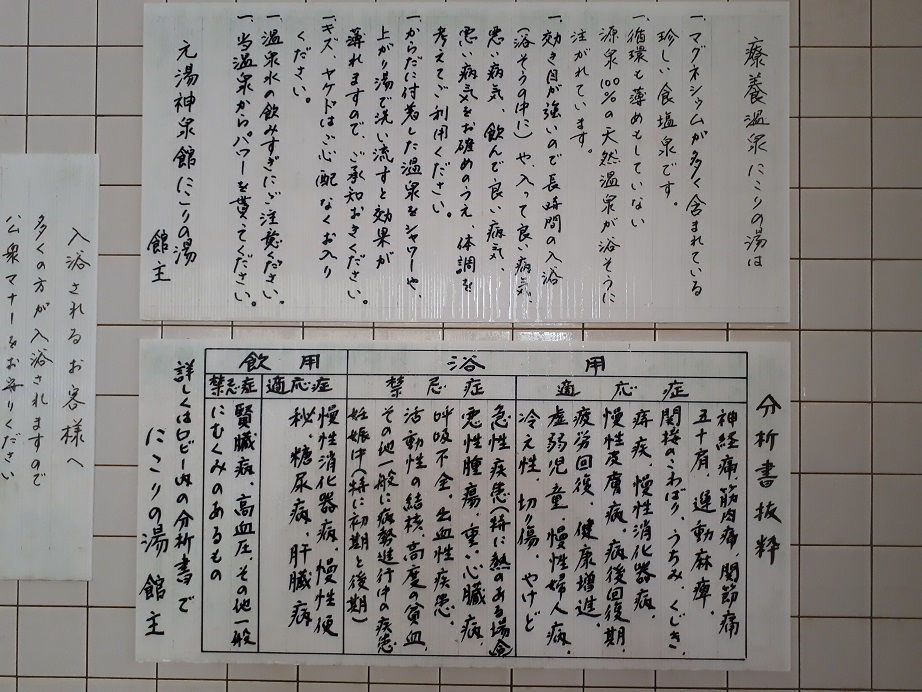 療養温泉にごりの湯は
一、マグネシウムが多く含まれている
珍しい食塩泉です。
一、循環も薄めもしていない
源泉100%の天然温泉が浴そうに
注がれています。
一、効き目が強いので長時間の入浴
(浴そうの中に)や、入って良い病気、
悪い病気、飲んで良い病気、
悪い病気をお確めのうえ、体調を
考えてご利用ください。
一、からだに付着した温泉をシャワーや、
上がり湯で洗い流すと効果が
薄れますので、ご承知おきください。
一、キズ、ヤケドはご心配なくお入り
ください。
一、温泉水の飲みすぎにご注意ください。
一、当温泉からパワーを貰ってください。
元湯神泉館にごりの湯
館主
分析書抜粋
浴用
適応症
神経痛、筋肉痛、関節痛
五十肩、運動麻痺、
関接のこわばり、うちみ、くじき、
痔疾、慢性消化器病、
慢性皮膚病、病後回復期、
疲労回復、健康増進、
虚弱児童、慢性婦人病、
冷え性、切り傷、やけど
禁忌症
急性疾患(特に熱のある場合)
悪性腫瘍、重い心臓病、
呼吸不全、出血性疾患、
活動性の結核、高度の貧血、
その他一般に病勢進行中の疾患
妊娠中(特に初期と後期)
飲用
適応症
慢性消化器病、慢性便
秘、糖尿病、肝臓病
禁忌症
腎臓病、高血圧、その他一般
にむくみのあるもの
詳しくはロビー内の分析書で
にごりの湯 館主
入浴されるお客様へ
多くの方が入浴されますので
公衆マナーをお守りください